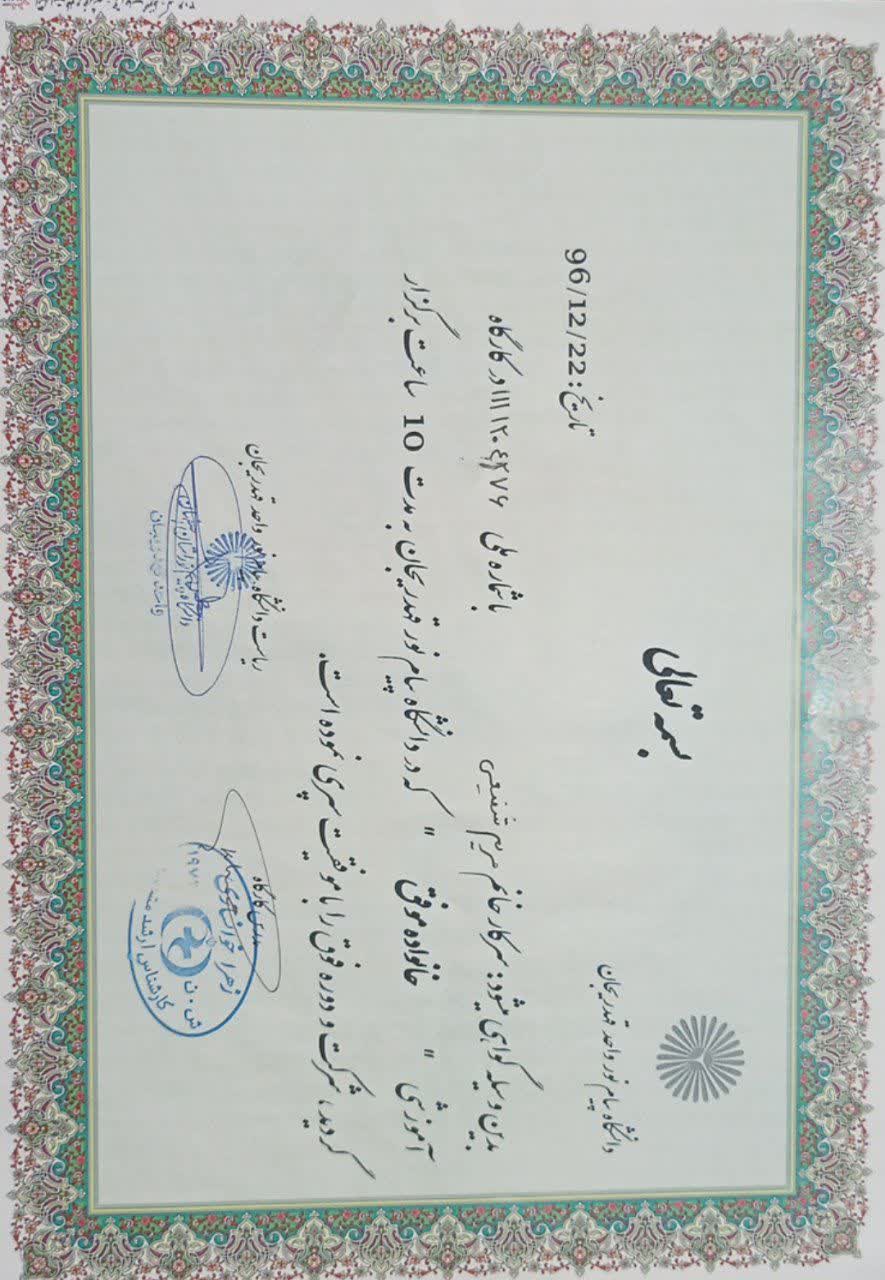 بسمه تعالی
دانشگاه پیام نور واحد قهدریجان
تاریخ: 96/12/22
بدین وسیله گواهی میشود: سرکار خانم مریم شفیعی با شماره ملی در کارگاه
آموزشی " خانواده موفق " که در دانشگاه پیام نور قهدریجان به مدت 10 ساعت برگزار
گردید، شرکت و دوره فوق را با موفقیت سپری نموده است.
مدرس کارگاه
ریاست دانشگاه پیام نور واحد قهدریجان
زهرا خوانساری
کارشناس ارشد
ش.ن